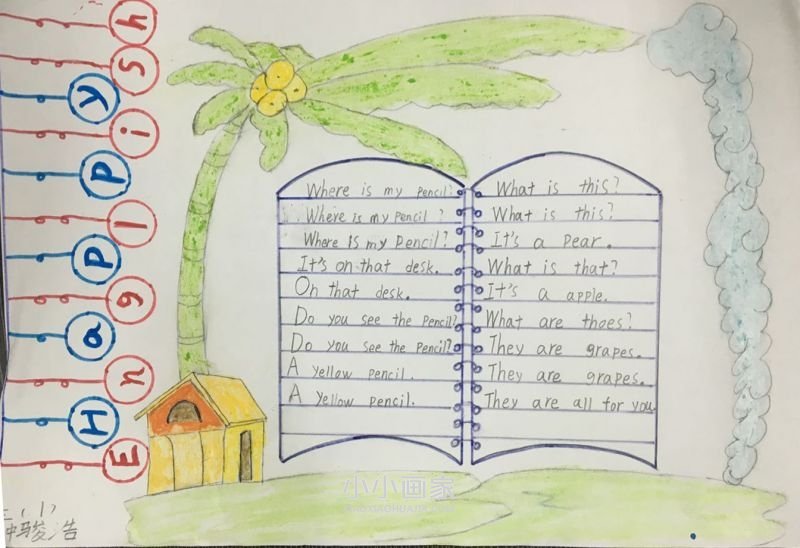 Happy
English
Where is my pencil?
Where is my pencil?
Where is my pencil?
It's on that desk.
On that desk.
Do you see the pencil?
Do you see the pencil?
A yellow pencil.
A yellow pencil.
What is this?
What is this?
It's a pear.
What is that?
It's a apple.
What are thoes?
They are grapes.
They are grapes.
They are all for you
骏浩
小小画家
XIAOXIAOHUAJIA.COM